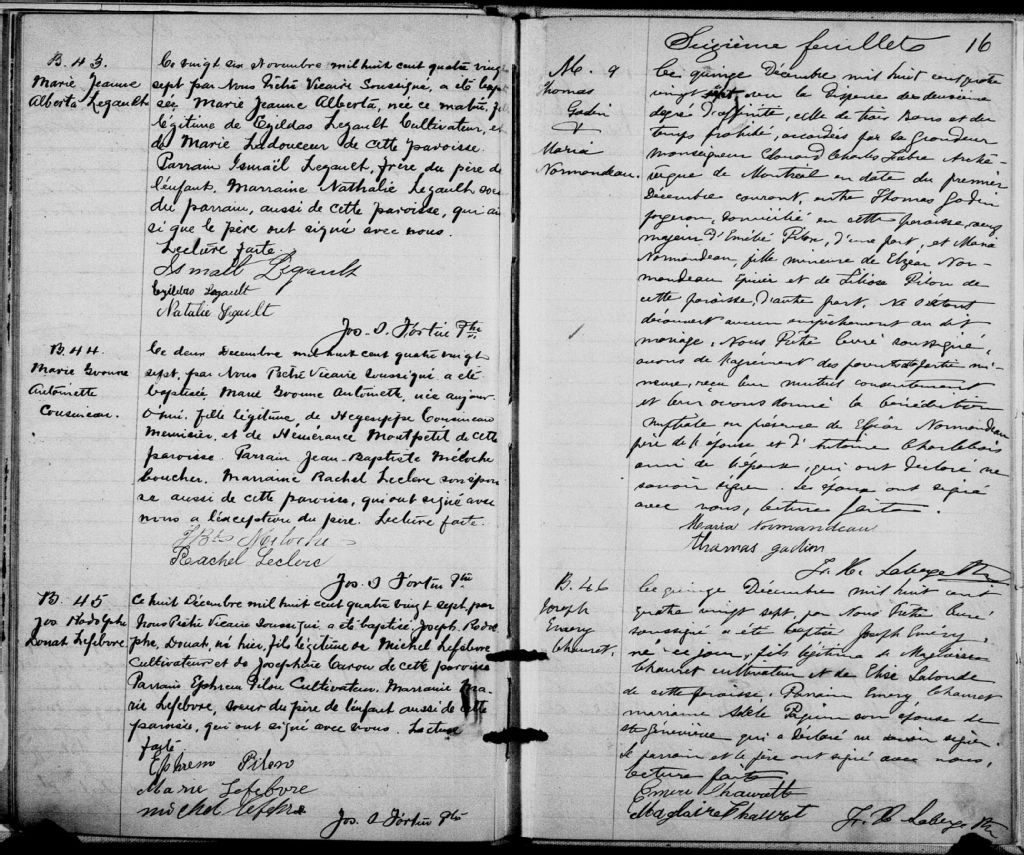 B. 43.
Marie Jeanne
Alberta Legault
Ce vingt six Novembre mil huit cent quatre vingt
sept par Nous Prêtre Vicaire Soussigné, a été bap
sée Marie Jeanne Alberta, née ce matin, fille
légitime de Egildas Legault Cultivateur, et
de Marie Ladouceur de cette paroisse.
Parrain Ismaël Legault, frère du père de
l'enfant. Marraine Nathalie Legault soeur
du parrain, aussi de cette paroisse, qui ain
si que le père ont signé avec nous.
Lecture faite.
Ismaël Légault
Egildas Legault
Natalie Legault
Jos. O. Fortin Ptre.
B. 44.
Marie Yvonne
Antoinette
Cousineau.
Ce deux Decembre mil huit cent quatre vingt
sept, par Nous Prêtre Vicaire soussigné a été
baptisée, Marie Yvonne Antoinette, née aujour
d'hui, fille légitime de Hegesippe Cousineau
Menuisier, et de Hémérance Montpetit de cette
paroisse. Parrain Jean-Baptiste Méloche
boucher. Marraine Rachel Leclerc son épou
se aussi de cette paroisse, qui ont signé avec
nous a l'exception du père. Lecture faite.
J Bte Meloche
Rachel Leclerc
Jos. O Fortin Ptre
B. 45
Jos Rodolphe
Donat Lefebvre
Ce huit Décembre mil huit cent quatre vingt sept, par
Nous Prêtre Vicaire Soussigné, a été baptisé Joseph Rodol
phe, Donat, né hier, fils légitime de Michel Lefebvre
Cultivateur et de Josephine Carou de cette paroisse
Parrain Ephrem Pilon Cultivateur. Marraine Ma
rie Lefebvre, soeur du père de l'enfant aussi de cette
paroisse, qui ont signé avec nous. Lecture
faite.
Ephrem Pilon
Marie Lefebvre
michel lefebre
Jos. O Fortin Ptre
Seizième feuillet 16
M. 9
Thomas
Gadin
&
Maria
Normandeau.
Ce quinze Décembre mil huit cent quatre
vingt sept vu la Dispense du deuxième
degré d'affinité, celle de trois Bans et du
temps prohibé, accordées par sa Grandeur
Monseigneur Edouard Charles Fabre Arche-
vêque de Montréal en date du premier
Décembre courant, entre Thomas Gadin
forgeron, domicilié en cette paroisse, veuf
majeur d'Emilie Pilon, d'une part, et Maria
Normandeau, fille mineure de Elzéar Nor-
mandeau Epicier et de Libose Pilon de
cette paroisse, d'autre part. Ne s'étant
découvert aucun empêchement au dit
mariage, Nous Prêtre Curé soussigné,
avons de l'agrément des parents de la partie mi-
neure, reçu leur mutuel consentement
et leur avons donné la bénédiction
nuptiale en présence de Elzéar Normandeau
père de l'épouse et d'Antoine Charlebois
ami de l'épouse, qui ont déclaré ne
savoir signer. Les époux ont signé
avec nous, lecture faite.
Maria Normandeau
thomas gadion
F. X. Laberge Ptre
B. 46
Joseph
Emery
Chauret.
Ce quinze Décembre mil huit cent
quatre vingt sept, par Nous Prêtre Curé
soussigné a été baptisé Joseph Emery,
né ce jour, fils légitime de Magloire
Chauret cultivateur et de Elise Lalonde
de cette paroisse. Parrain Emery Chauret
marraine Adèle Paquin son épouse de
Ste Geneviève qui a déclaré ne savoir signer.
Le parrain et le père ont signé avec nous,
lecture faite
Emeri Chaurette
Magloire Chauret
F. X Laberge Ptre